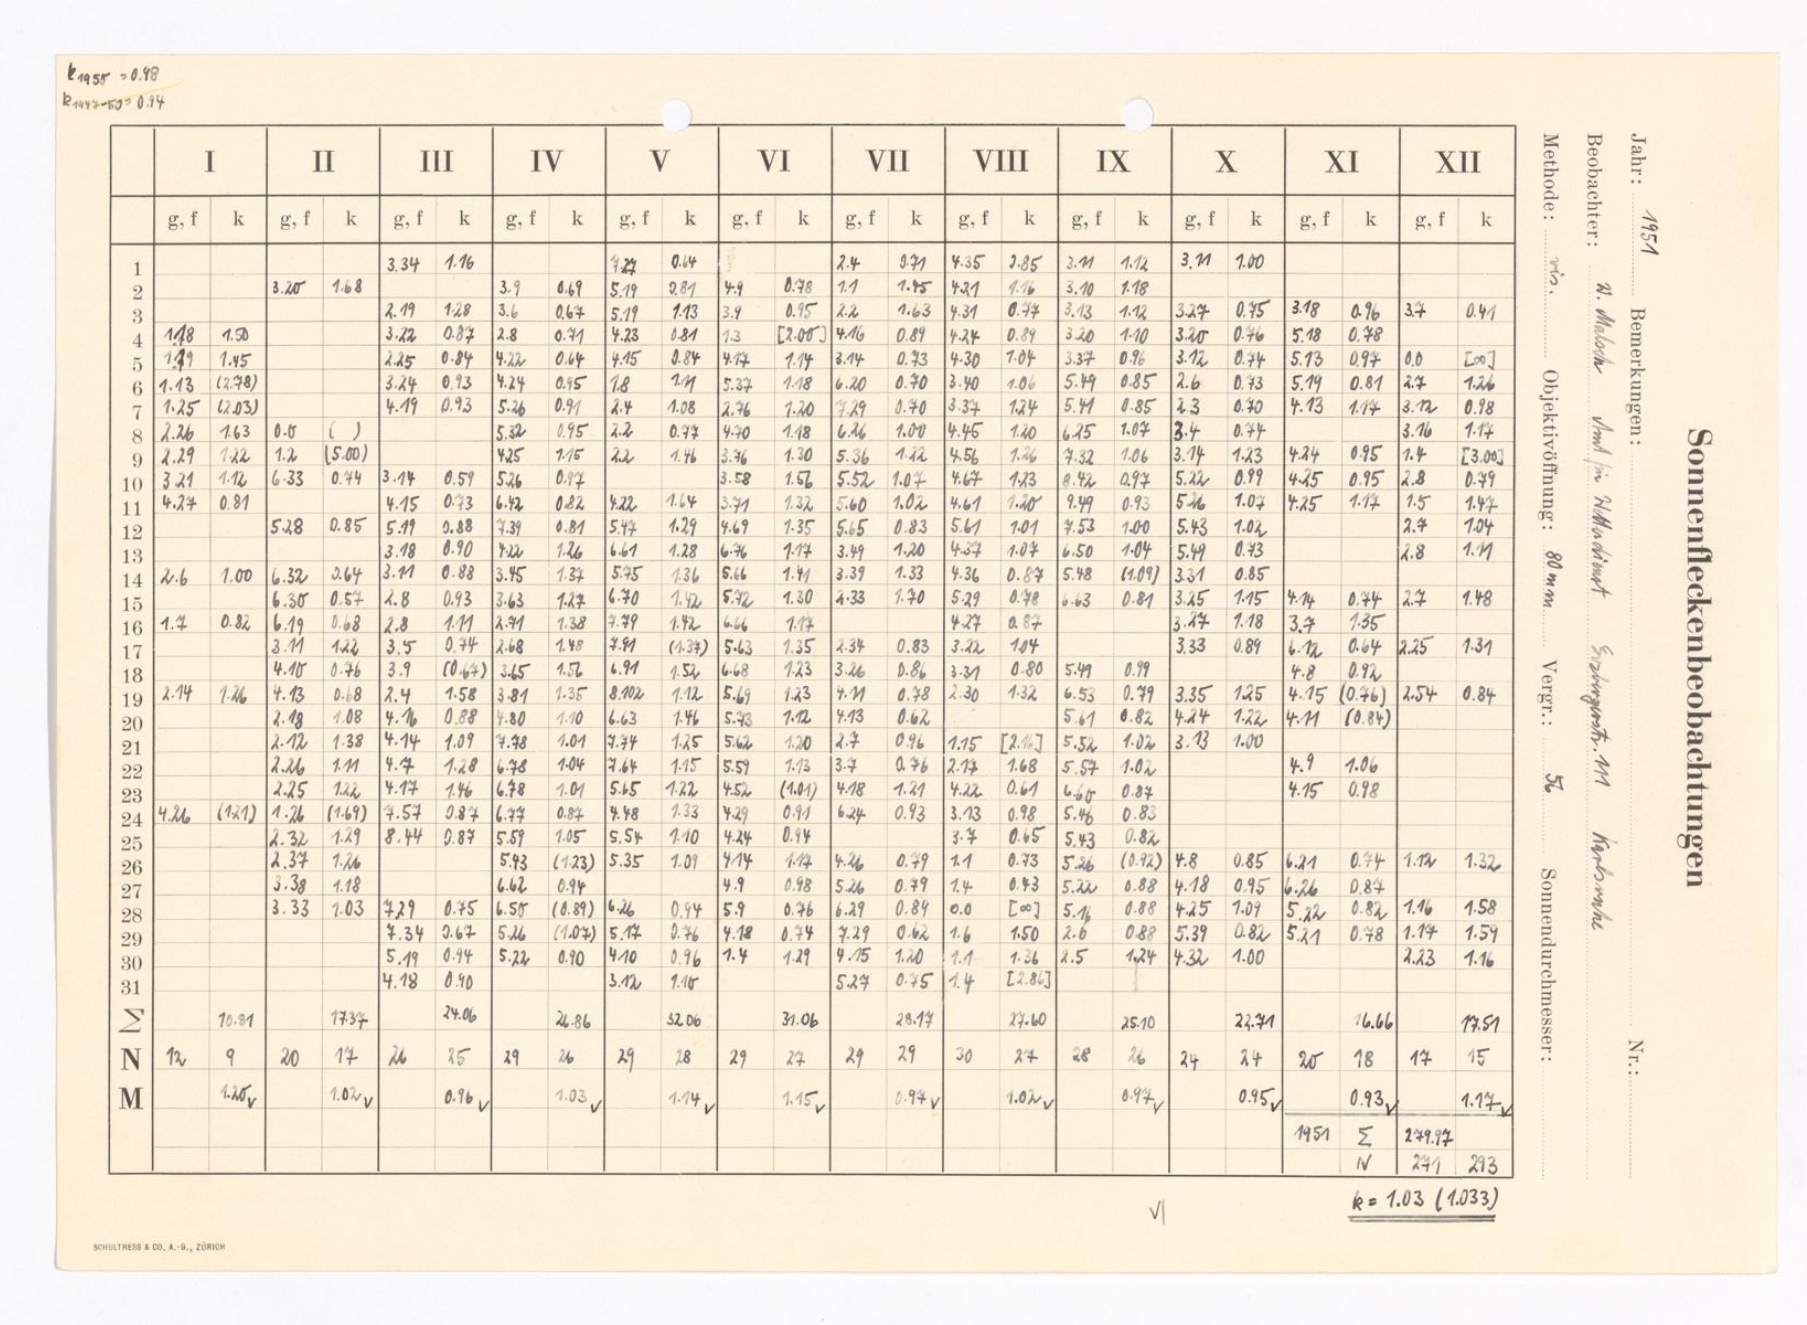 k1950 = 0.98
k1947-50 = 0.94
I II III IV V VI VII VIII IX X XI XII
g, f k g, f k g, f k g, f k g, f k g, f k g, f k g, f k g, f k g, f k g, f k g, f k
1 3.34 1.16 0.64 2.4 0.71 4.35 0.85 3.11 1.12 3.11 1.00
2 3.20 1.68 3.9 0.69 5.19 0.81 4.9 0.78 1.1 1.45 4.21 1.16 3.10 1.18
3 2.19 1.28 3.6 0.67 5.19 1.13 3.9 0.95 2.2 1.63 4.31 0.77 3.13 1.12 3.27 0.75 3.18 0.96 3.7 0.41
4 1.18 1.50 3.22 0.87 2.8 0.71 4.23 0.81 1.3 [2.00] 4.16 0.89 4.24 0.89 3.20 1.10 3.20 0.76 5.18 0.78
5 1.19 1.45 2.25 0.84 4.22 0.64 4.15 0.84 4.17 1.14 3.14 0.73 4.30 1.04 3.37 0.96 3.12 0.74 5.13 0.97 0.0 [∞]
6 1.13 (2.78) 3.24 0.93 4.24 0.95 1.8 1.11 5.37 1.18 6.20 0.70 3.40 1.06 5.49 0.85 2.6 0.73 5.19 0.81 2.7 1.26
7 1.25 (2.03) 4.19 0.93 5.26 0.91 2.4 1.08 2.76 1.20 7.29 0.70 3.37 1.24 5.41 0.85 2.3 0.70 4.13 1.17 3.12 0.98
8 2.26 1.63 0.0 ( ) 5.32 0.95 2.2 0.77 4.70 1.18 6.26 1.00 4.45 1.20 6.25 1.07 3.4 0.74 3.16 1.17
9 2.29 1.22 1.2 (5.00) 4.25 1.15 2.2 1.46 3.76 1.30 5.36 1.22 4.56 1.26 7.32 1.06 3.14 1.23 4.24 0.95 1.4 [3.00]
10 3.21 1.12 6.33 0.74 3.14 0.59 5.26 0.97 3.58 1.56 5.52 1.07 4.67 1.23 8.42 0.97 5.22 0.99 4.25 0.95 2.8 0.79
11 4.27 0.81 4.15 0.73 6.42 0.82 4.22 1.64 3.71 1.32 5.60 1.02 4.61 1.20 9.49 0.93 5.26 1.07 4.25 1.17 1.5 1.47
12 5.28 0.85 5.19 0.88 7.39 0.81 5.47 1.29 4.69 1.35 5.65 0.83 5.61 1.01 7.53 1.00 5.43 1.02 2.7 1.04
13 3.18 0.90 4.22 1.26 6.61 1.28 6.76 1.17 3.49 1.20 4.37 1.07 6.50 1.04 5.49 0.73 2.8 1.11
14 2.6 1.00 6.32 0.64 3.11 0.88 3.45 1.37 5.75 1.36 5.66 1.41 3.39 1.33 4.36 0.87 5.48 (1.09) 3.31 0.85
15 6.30 0.57 2.8 0.93 3.63 1.27 6.70 1.42 5.72 1.30 2.33 1.70 5.29 0.78 6.63 0.81 3.25 1.15 4.14 0.74 2.7 1.48
16 1.7 0.82 6.19 0.68 2.8 1.11 2.71 1.38 7.79 1.42 6.66 1.17 4.27 0.87 3.27 1.18 3.7 1.35
17 3.11 1.22 3.5 0.74 2.68 1.48 7.91 (1.37) 5.63 1.35 2.34 0.83 3.22 1.04 3.33 0.89 6.12 0.64 2.25 1.31
18 4.10 0.76 3.9 (0.67) 3.65 1.56 6.91 1.52 6.68 1.23 3.26 0.86 3.31 0.80 5.49 0.99 4.8 0.92
19 2.14 1.26 4.13 0.68 2.4 1.58 3.81 1.35 8.102 1.12 5.69 1.23 4.11 0.78 2.30 1.32 6.53 0.79 3.35 1.25 4.15 (0.76) 2.54 0.84
20 2.18 1.08 4.16 0.88 4.80 1.10 6.63 1.46 5.73 1.12 4.13 0.62 5.61 0.82 4.24 1.22 4.11 (0.84)
21 2.12 1.38 4.14 1.09 7.78 1.01 7.74 1.25 5.62 1.20 2.7 0.96 1.15 [2.16] 5.52 1.02 3.13 1.00
22 2.26 1.11 4.7 1.28 6.78 1.04 7.64 1.15 5.59 1.13 3.7 0.76 2.17 1.68 5.57 1.02 4.9 1.06
23 2.25 1.22 4.17 1.46 6.78 1.01 5.65 1.22 4.52 (1.01) 4.18 1.21 4.22 0.61 6.60 0.87 4.15 0.98
24 4.26 (1.21) 1.26 (1.69) 7.57 0.87 6.77 0.87 4.48 1.33 4.29 0.91 6.24 0.93 3.13 0.98 5.46 0.83
25 2.32 1.29 8.44 0.87 5.59 1.05 5.54 1.10 4.24 0.94 3.7 0.65 5.43 0.82
26 2.37 1.26 5.43 (1.23) 5.35 1.09 4.14 1.17 4.26 0.79 1.1 0.73 5.26 (0.92) 4.8 0.85 6.21 0.74 1.12 1.32
27 3.38 1.18 6.62 0.94 4.9 0.98 5.26 0.79 1.4 0.43 5.22 0.88 4.18 0.95 6.26 0.87
28 3.33 1.03 7.29 0.75 6.50 (0.89) 6.26 0.94 5.9 0.76 6.29 0.89 0.0 [∞] 5.16 0.88 4.25 1.09 5.22 0.82 1.16 1.58
29 7.34 0.67 5.26 (1.07) 5.17 0.76 4.18 0.74 7.29 0.62 1.6 1.50 2.6 0.88 5.39 0.82 5.21 0.78 1.17 1.59
30 5.19 0.94 5.22 0.90 4.10 0.96 1.4 1.29 4.15 1.20 1.1 1.36 2.5 1.24 4.32 1.00 2.23 1.16
31 4.18 0.90 3.12 1.10 5.27 0.75 1.4 [2.86]
Σ 10.81 17.37 24.06 26.86 32.06 31.06 28.17 27.60 25.10 22.71 16.66 17.51
N 12 9 20 17 26 25 29 26 29 28 29 27 29 29 30 27 28 26 24 24 20 18 17 15
M 1.20 1.02 0.96 1.03 1.14 1.15 0.97 1.02 0.97 0.95 0.93 1.17
1951 Σ 279.97
N 271 293
k = 1.03 (1.033)
SCHULTHESS & CO. A.-G., ZÜRICH
Sonnenfleckenbeobachtungen
Jahr: 1951 Bemerkungen: Nr.:
Beobachter: W. Malsch Amt für Wetterdienst Erzbergerstr. 111 Karlsruhe
Methode: vis. Objektivöffnung: 80 mm Vergr.: 56 Sonnendurchmesser: